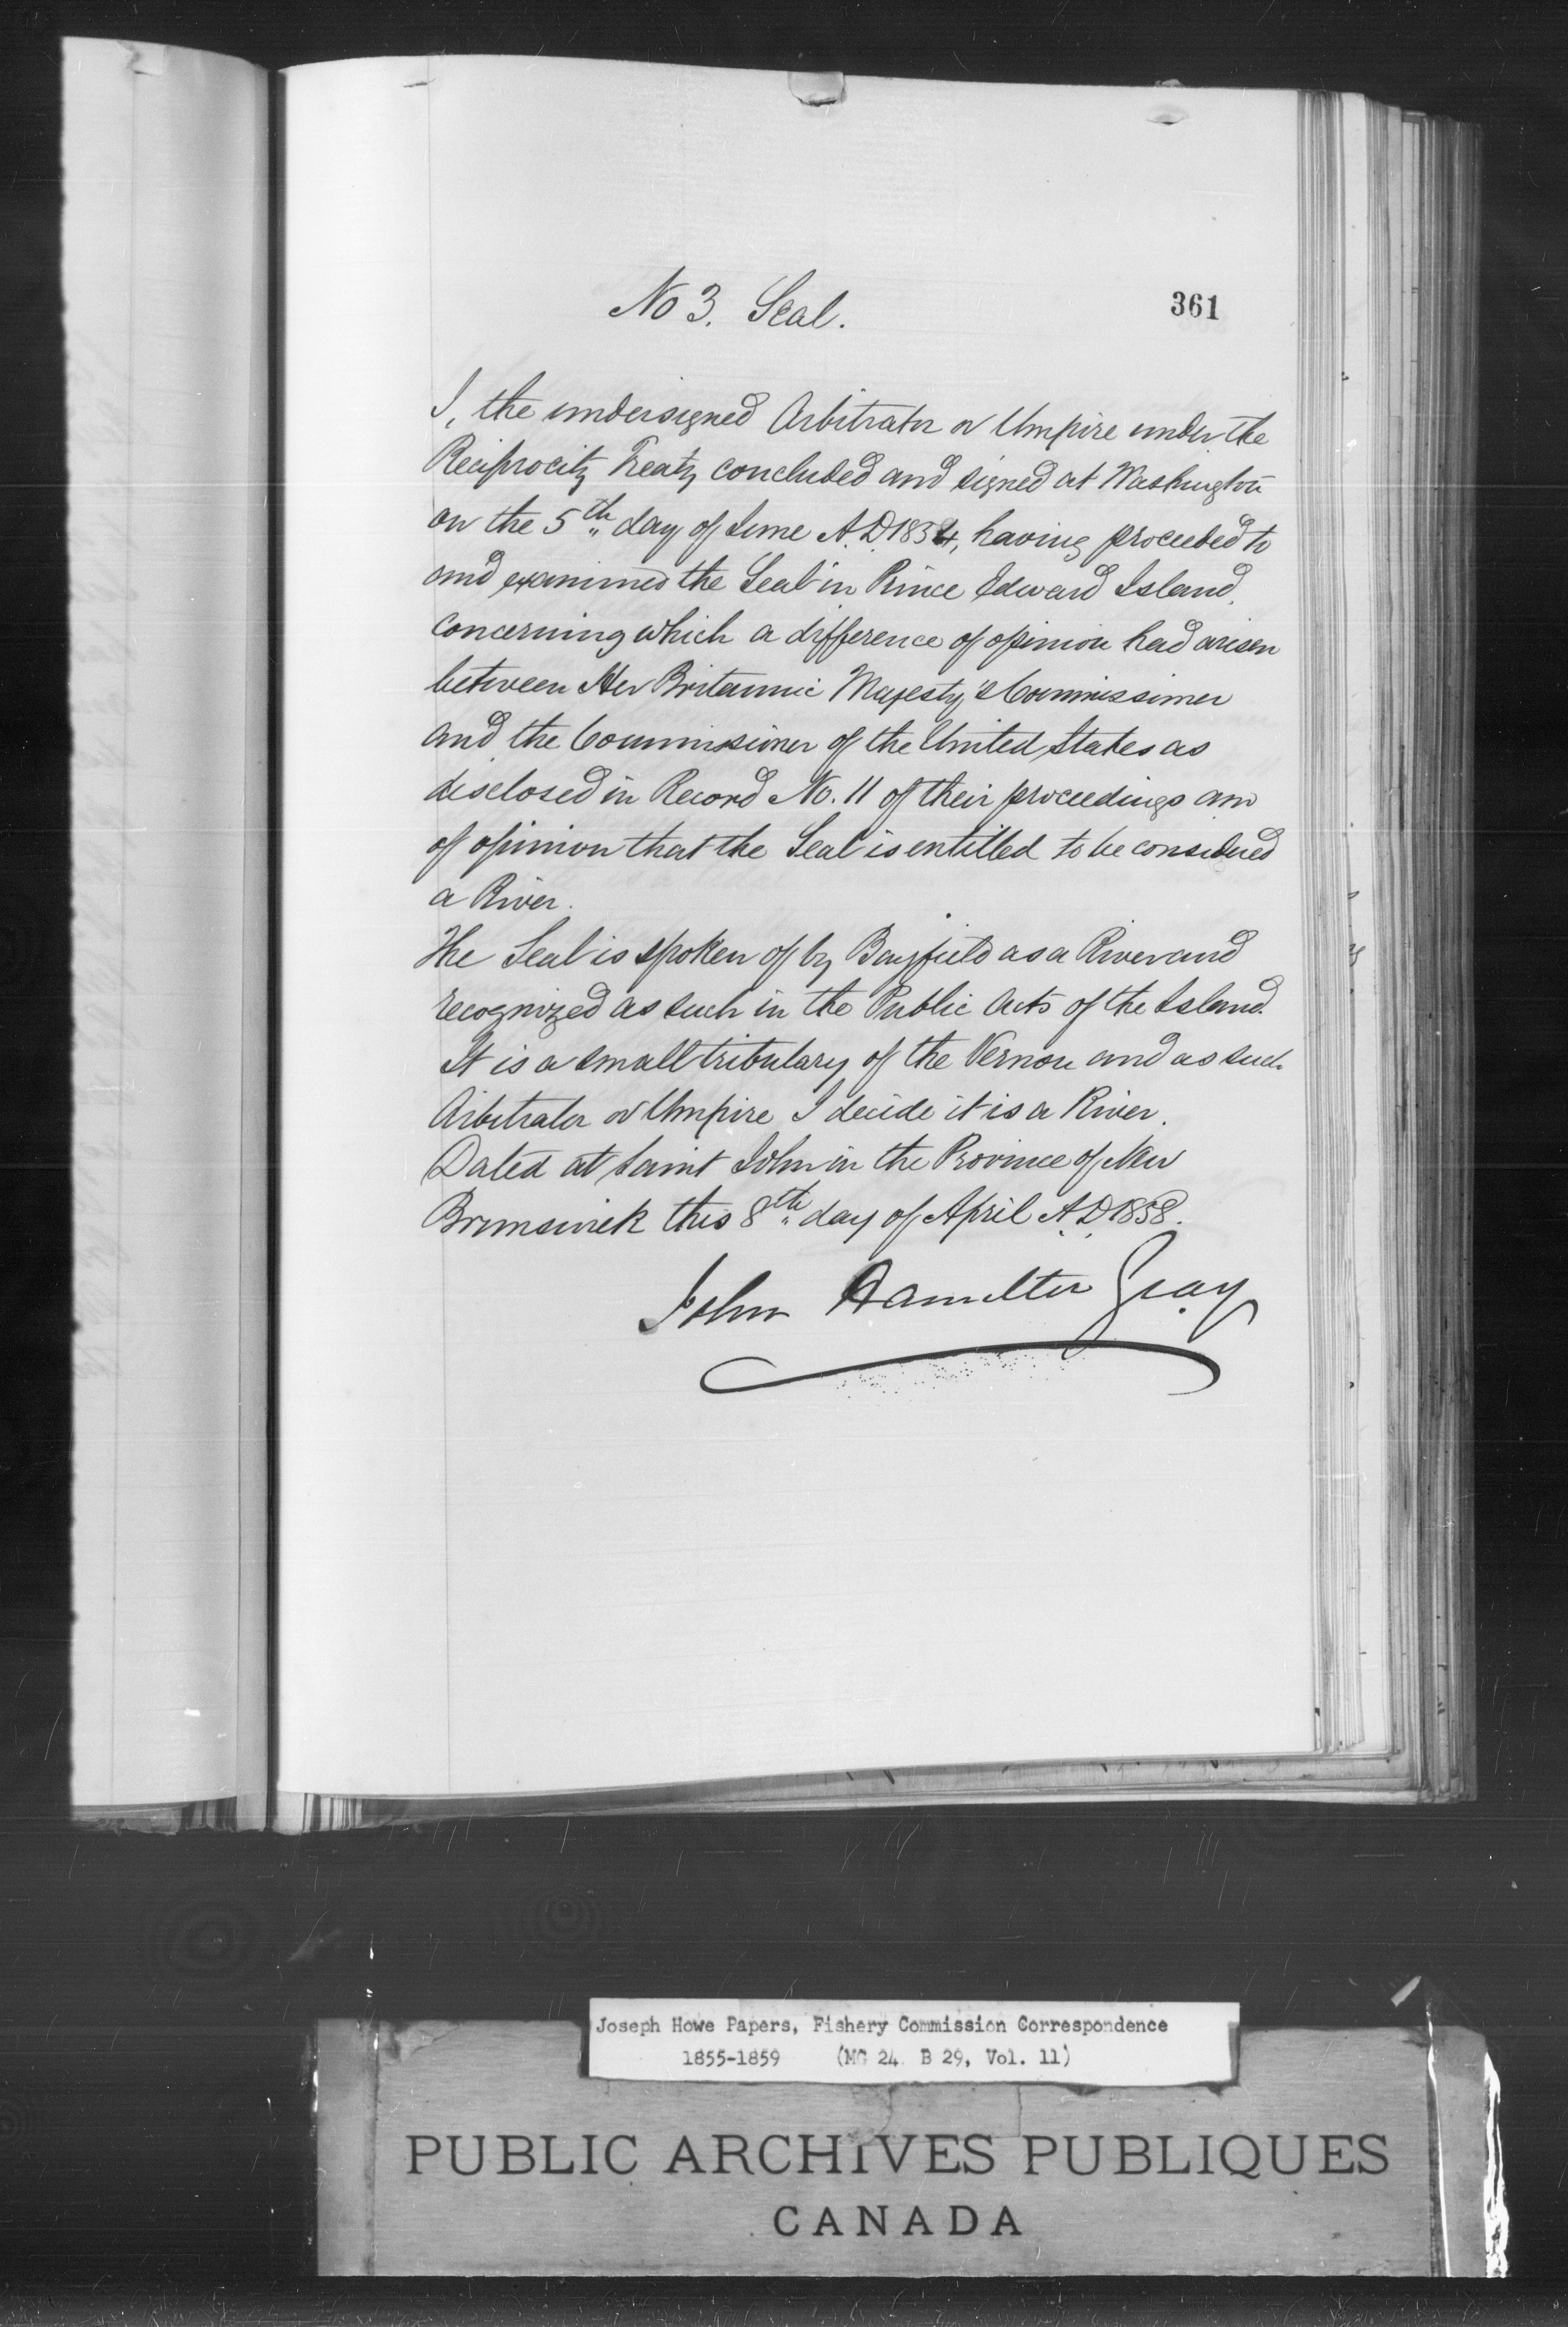 No 3. Seal.
361
I, the undersigned Arbitrator or Umpire under the
Reciprocity Treaty concluded and signed at Washington
on the 5th day of June A.D 1854, having proceeded to
and examined the Seal in Prince Edward Island,
concerning which a difference of opinion had arisen
between Her Britannic Majesty's Commissioner
and the Commissioner of the United States as
disclosed in Record No. 11 of their proceedings am
of opinion that the Seal is entitled to be considered
a River.
The Seal is spoken of by Bayfield as a River and
recognized as such in the Public Acts of the Island.
It is a small tributary of the Vernon and as such
Arbitrator or Umpire I decide it is a River.
Dated at Saint John in the Province of New
Brunswick this 8th day of April A.D 1858.
John Hamilton Gray
Joseph Howe Papers, Fishery Commission Correspondence
1855-1859 (MG 24 B 29, Vol. 11)
PUBLIC ARCHIVES PUBLIQUES
CANADA